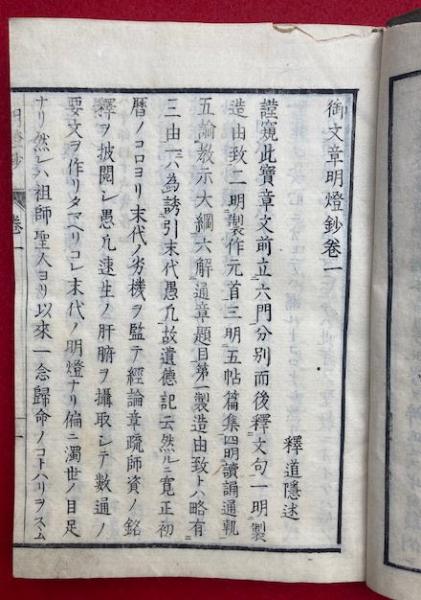 御文章明燈鈔卷一
釋道隱述
謹窺此寶章文前立六門分別而後釋文句一明製
造由致二明製作元首三明五帖篇集四明讀誦通軌
五論教示大綱六解通章題目第一製造由致トハ略有
三由一ハ為誘引末代愚凡故遺德記云然ルニ寛正初
曆ノコロヨリ末代ノ劣機ヲ監テ經論章疏師資ノ銘
釋ヲ披閲シ愚凡速生ノ肝腑ヲ攝取シテ數通ノ
要文ヲ作リタマヘリコレ末代ノ明燈ナリ偏ニ濁世ノ目足
ナリ然レハ祖師聖人ヨリ以來一念歸命ノコトハリヲスヽム
卷一